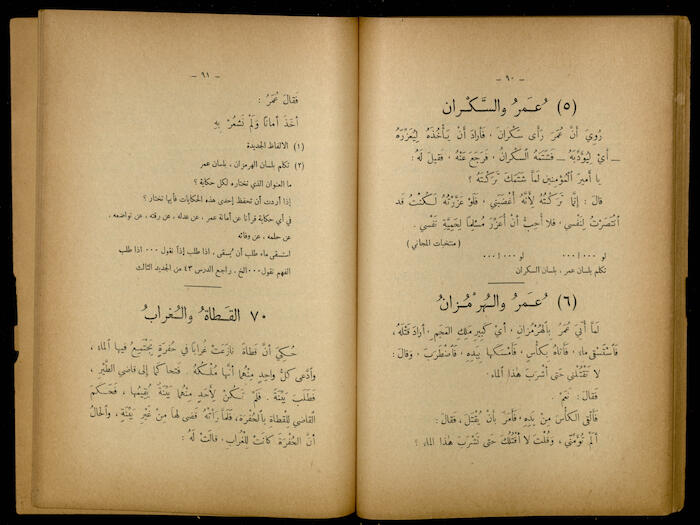 — ٩٠ —
(٥) عُمَرُ والسَّكْران
رُوِيَ أنَّ عُمَرَ رَأى سَكْرانَ ، فَأرادَ أنْ يَأخُذَهُ لِيُعَزِّرَهُ
— أيْ لِيُؤَدِّبَهُ — فَشَتَمَهُ السَّكْرانُ ، فَرَجَعَ عَنْهُ ، فقيلَ لَهُ :
يا أميرَ المُؤمِنينَ لَمَّا شَتَمَكَ تَرَكْتَهُ ؟
قالَ : إنَّما تَرَكْتُهُ لِأنَّهُ أغْضَبَني ، فَلَوْ عَزَّرْتُهُ لَكُنْتُ قَد
انْتَصَرْتُ لِنَفْسي ، فَلا أُحِبُّ أنْ أُعَزِّرَ مُسْلِمًا لِحَمِيَّةِ نَفْسي .
( منتخبات المجاني )
لو ٠٠٠ ا٠٠٠ لو ٠٠٠ ا٠٠٠
تكلم بلسان عمر ، بلسان السكران
(٦) عُمَرُ والهُرْمُزان
لَمَّا أُتِيَ عُمَرُ بِالهُرْمُزانِ ، أيْ كَبيرِ مَلِكِ العَجَمِ ، أرادَ قَتْلَهُ ،
فَاسْتَسْقى ماءً ، فَأتاهُ بِكَأْسٍ ، فَأمْسَكَها بِيَدِهِ ، فَاضْطَرَبَ ، وَقالَ :
لا تَقْتُلْني حَتى أشْرَبَ هذا الماءَ .
فَقالَ : نَعَمْ .
فَألْقى الكَأْسَ مِنْ يَدِهِ ، فَأمَرَ بِأنْ يُقْتَلَ ، فَقالَ :
ألَمْ تُؤَمِّنّي ، وَقُلْتَ لا أقْتُلُكَ حَتى تَشْرَبَ هذا الماءَ ؟
— ٩١ —
فَقالَ عُمَرُ :
أخَذَ أمانًا وَلَمْ نَشْعُرْ بِهِ
(١) الالفاظ الجديدة
(٢) تكلم بلسان الهرمزان ، بلسان عمر
ما العنوان الذي تختاره لكل حكاية ؟
إذا أردت أن تحفظ إحدى هذه الحكايات فأيها تختار ؟
في أي حكاية قرأنا عن أمانة عمر ، عن عدله ، عن رقته ، عن تواضعه ،
عن حلمه ، عن وفائه
استسقى ماء طلب أن يُسقى ، اذا طلب إذاً نقول ٠٠٠ اذا طلب
الفهم نقول٠٠٠الخ ، راجع الدرس ٤٣ من الجديد الثالث
٧٠ القَطاةُ والغُرابُ
حُكِيَ أنَّ قَطاةً نازَعَتْ غُرابًا في حُفْرَةٍ يَجْتَمِعُ فيها الماءُ ،
وادَّعى كلُّ واحِدٍ مِنْهُما أنَّها مُلْكُهُ . فَتَحاكَما إلى قاضي الطَّيْرِ ،
فَطَلَبَ بَيِّنَةً . فَلَمْ تَكُنْ لِأحَدٍ مِنْهُما بَيِّنَةٌ يُقيمُها ، فَحَكَمَ
القاضي لِلقَطاةِ بِالحُفْرَةِ ، فَلَمَّا رَأتْهُ قَضى لَها مِنْ غَيْرِ بَيِّنَةٍ ، والحَالُ
أنَّ الحُفْرَةَ كانَتْ لِلغُرابِ ، قالَتْ لَهُ :